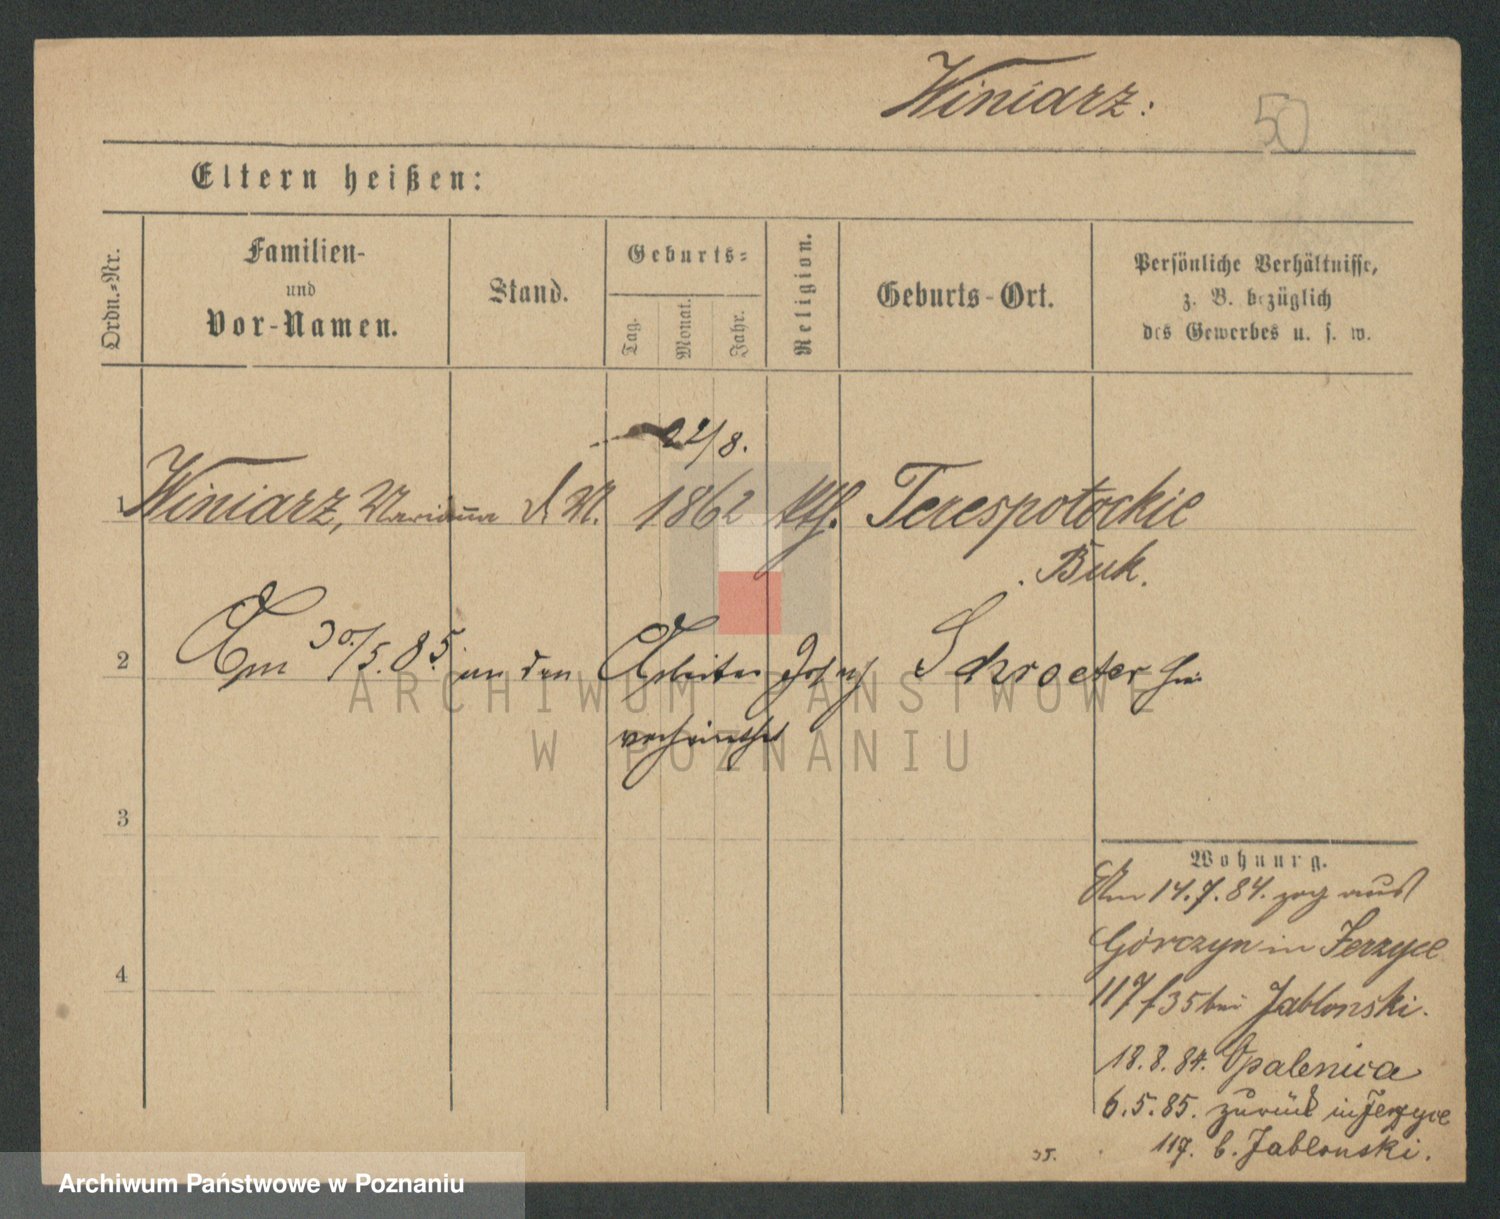 Winiarz:
50
Eltern heißen:
Ordn.-Nr.
Familien-
und
Vor-Namen.
Stand.
Geburts-
Tag.
Monat.
Jahr.
Religion.
Geburts-Ort.
Persönliche Verhältnisse,
z. B. bezüglich
des Gewerbes u. s. w.
22/8.
1 Winiarz, Marianna d. M. 1862 kth. Terespotockie
Buk.
2 Am 30/5.85 an den Arbeiter Josef Schroeter hier
verheirathet
ARCHIWUM PAŃSTWOWE
W POZNANIU
3
Wohnung.
Am 14.7.84. zog aus
Górczyn in Jerzyce
117/35 bei Jablonski.
4
18.8.84. Opalenica
6.5.85. zurück in Jerzyce
117. b. Jablonski.
Archiwum Państwowe w Poznaniu